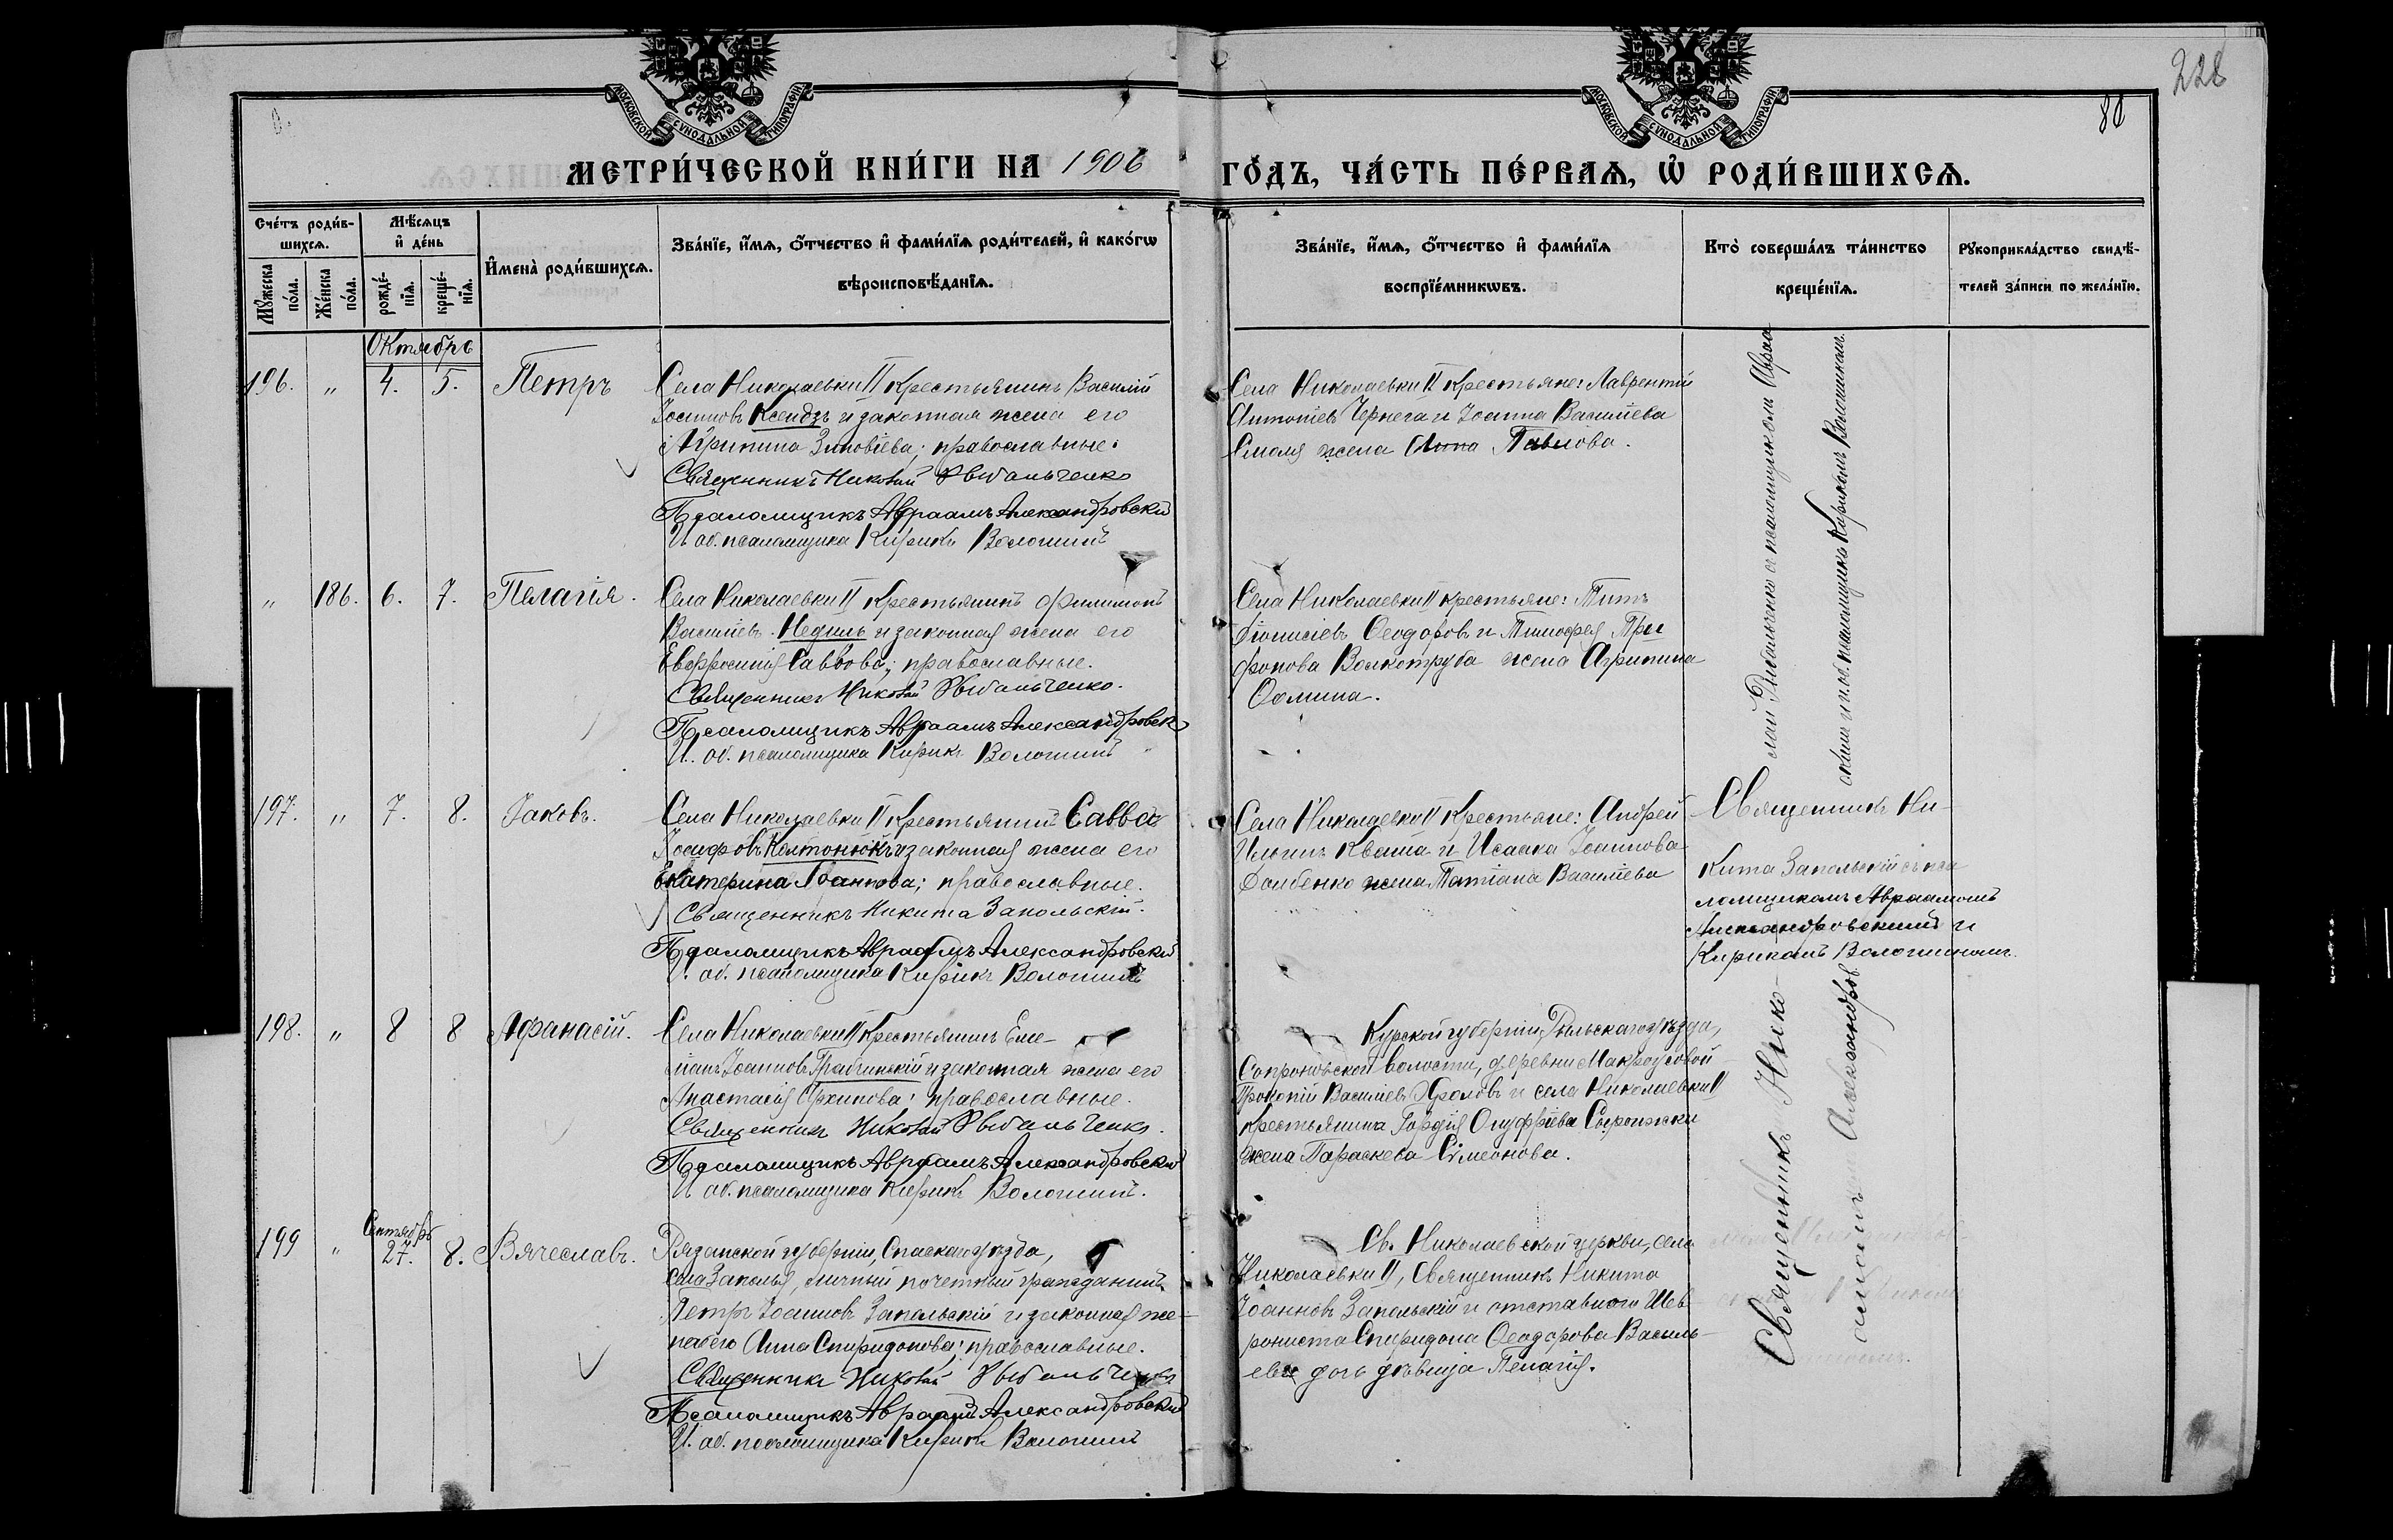 228
88
МОСКОВСКОЙ СѴНОДАЛЬНОЙ ТИПОГРАФІИ
МОСКОВСКОЙ СѴНОДАЛЬНОЙ ТИПОГРАФІИ
МЕТРИ́ЧЕСКОЙ КНИ́ГИ НА 1906 ГО́ДЪ, ЧА́СТЬ ПЕ́РВАѦ, Ѡ҆ РОДИ́ВШИХСѦ.
Сче́тъ роди́в-
шихсѧ.
Мѣ́сѧцъ
и҆ де́нь
Мꙋ́жеска по́ла.
Же́нска по́ла.
рожде́-
нїѧ.
креще́-
нїѧ.
И҆мена̀ роди́вшихсѧ.
Зва́нїе, и҆́мѧ, ѻ҆́тчество и҆ фами́лїѧ роди́телей, и҆ како́гѡ
вѣроисповѣ́данїѧ.
Зва́нїе, и҆́мѧ, ѻ҆́тчество и҆ фами́лїѧ
воспрїе́мникѡвъ.
Кто̀ соверша́лъ та́инство
креще́нїѧ.
Рꙋкоприкла́дство свидѣ́-
телей за́писи по жела́нїю.
Октябрь
196. „ 4. 5. Петръ
Села Николаевки II крестьянинъ Василій
Іоанновъ Ксендзъ и законная жена его
Агрипина Зиновіева; православные.
Священникъ Николай Рыбальченко
Псаломщикъ Авраамъ Александровскій
И. об. псаломщика Кирикъ Волошинъ
Села Николаевки II крестьяне: Лаврентій
Антоніевъ Чернега и Іоанна Василіева
жена Анна Павлова.
„ 186. 6. 7. Пелагія.
Села Николаевки II крестьянинъ Филимонъ
Василіевъ Недиль и законная жена его
Евфросинія Саввова; православные.
Священникъ Николай Рыбальченко.
Псаломщикъ Авраамъ Александровск
И. об. псаломщика Кирикъ Волошинъ
Села Николаевки II крестьяне: Титъ
Діонисіевъ Ѳеодоровъ и Тимофея Три
фонова Волкотруба жена Агрипина
Ѳомина.
лай Рыбальченко съ псаломщикомъ Авраа
скимъ и и. об. псаломщика Кирикомъ Волошиномъ.
197. „ 7. 8. Іаковъ.
Села Николаевки II крестьянинъ Савва
Іосифовъ Колтонюкъ и законная жена его
Екатерина Іоаннова; православные.
Священникъ Никита Запольскій.
Псаломщикъ Авраамъ Александровскій
И. об. псаломщика Кирикъ Волошинъ
Села Николаевки II крестьяне: Андрей
Ильинъ Кваша и Исаака Іоаннова
Долбенко жена Татіана Василіева
Священникъ Ни-
кита Запольскій съ пса
ломщикомъ Авраамомъ
Александровскимъ и
Кирикомъ Волошиномъ.
198. „ 8 8 Афанасій.
Села Николаевки II крестьянинъ Еме-
ліанъ Іоанновъ Грабчинскій и законная жена его
Анастасія Архипова; православные.
Священникъ Николай Рыбальченко.
Псаломщикъ Авраамъ Александровскій
И. об. псаломщика Кирикъ Волошинъ.
Курской губерніи, Рыльскаго уѣзда,
волости, деревни Макроусовой
Прокопій Василіевъ Фроловъ и села Николаевки II
крестьянина Гордія Онуфріева Сыроижки
жена Параскева Симеонова.
199 „ Сентябрь 27. 8. Вячеславъ.
Рязанской губерніи, Спаскаго уѣзда,
села Заполья, личный почетный гражданинъ
Петръ Іоанновъ Запольскій и законная же-
на его Анна Спиридонова; православные.
Священникъ Николай Рыбальченко
Псаломщикъ Авраамъ Александровскій
И. об. псаломщика Кирикъ Волошинъ
Св. Николаевской церкви, села
Николаевки II, Священникъ Никита
Іоанновъ Запольскій и отставного
Спиридона Ѳеодорова Василь-
ева дочь дѣвица Пелагія.
Священникъ Нико-
амомъ Александров